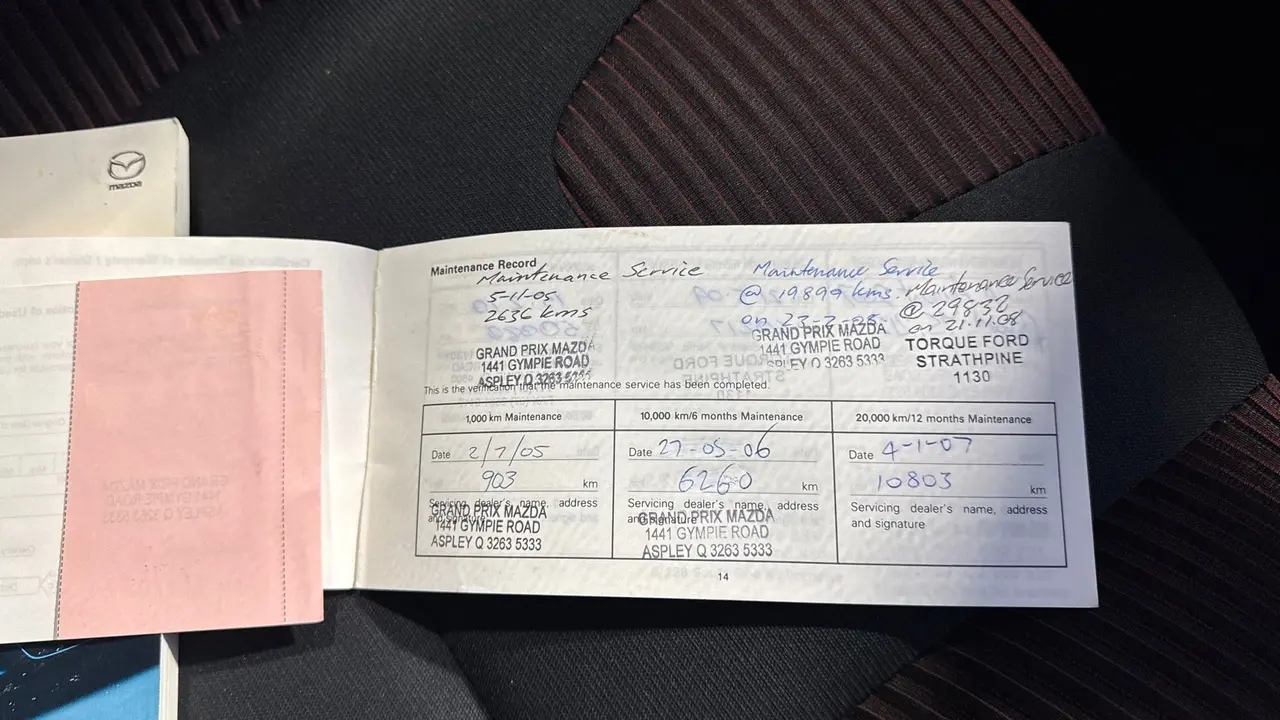 mazda
Maintenance Record
Maintenance Service
5-11-05
2636 kms
GRAND PRIX MAZDA
1441 GYMPIE ROAD
ASPLEY Q 3263
Maintenance Service
@ 19899 kms.
on
GRAND PRIX MAZDA
1441 GYMPIE ROAD
ASPLEY Q 3263 5333
Maintenance Service
@ 29832
on 21.11.08
TORQUE FORD
STRATHPINE
1130
This is the verification that the maintenance service has been completed.
1,000 km Maintenance
Date 2/7/05
903 km
Servicing dealer's name, address
and signature
GRAND PRIX MAZDA
1441 GYMPIE ROAD
ASPLEY Q 3263 5333
10,000 km/6 months Maintenance
Date 27-05-06
6260 km
Servicing dealer's name, address
and signature
GRAND PRIX MAZDA
1441 GYMPIE ROAD
ASPLEY Q 3263 5333
20,000 km/12 months Maintenance
Date 4-1-07
10803 km
Servicing dealer's name, address
and signature
14